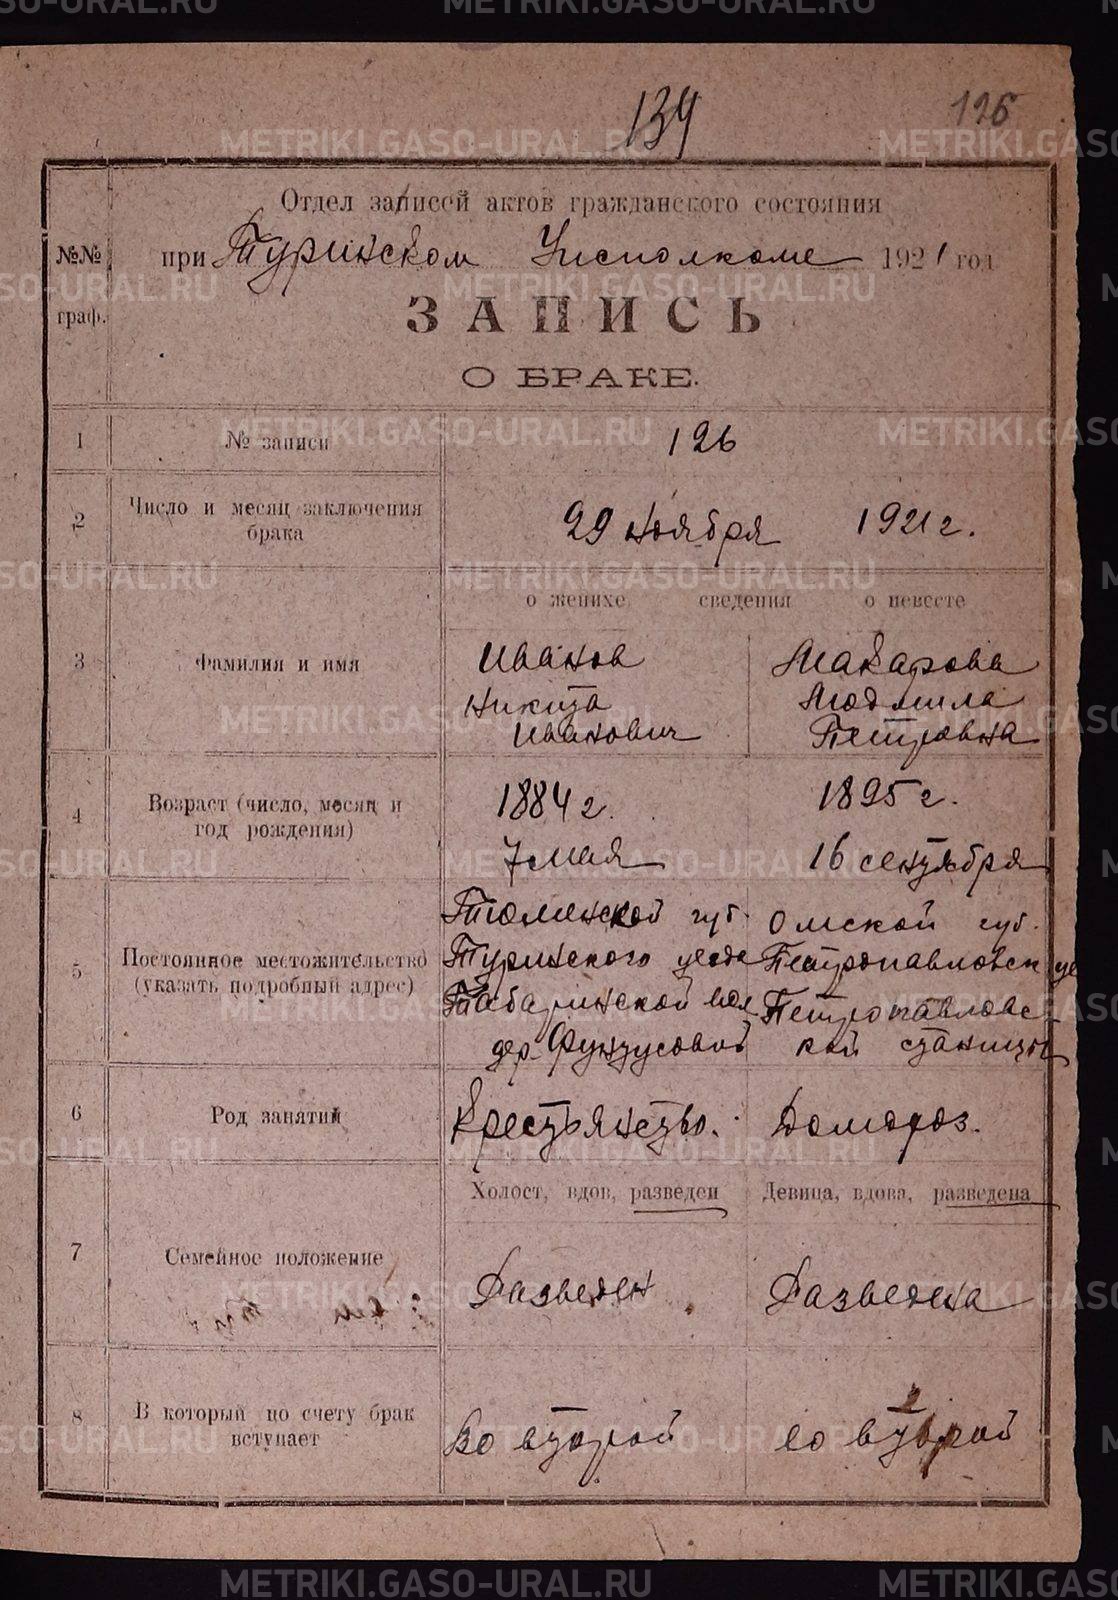 134
126
Отдел записей актов гражданского состояния
№№ граф.
при Туринском Уисполкоме 1921 год
ЗАПИСЬ
О БРАКЕ.
1 № записи 126
2 Число и месяц заключения брака 29 ноября 1921 г.
о женихе сведения о невесте
3 Фамилия и имя
Иванов Макарова
Никита Людмила
Иванович Петровна
4 Возраст (число, месяц и год рождения)
1884 г. 1895 г.
7 мая 16 сентября
5 Постоянное местожительство (указать подробный адрес)
Тюменской губ. Омской губ.
Туринского уезда Петропавловск уе
Табаринской вол Петропавловс-
дер. Фунтусовой кой станицы
6 Род занятий Крестьянство. Домороз.
Холост, вдов, разведен Девица, вдова, разведена
7 Семейное положение Разведен Разведена
8 В который по счету брак вступает Во второй во второй
2
METRIKI.GASO-URAL.RU